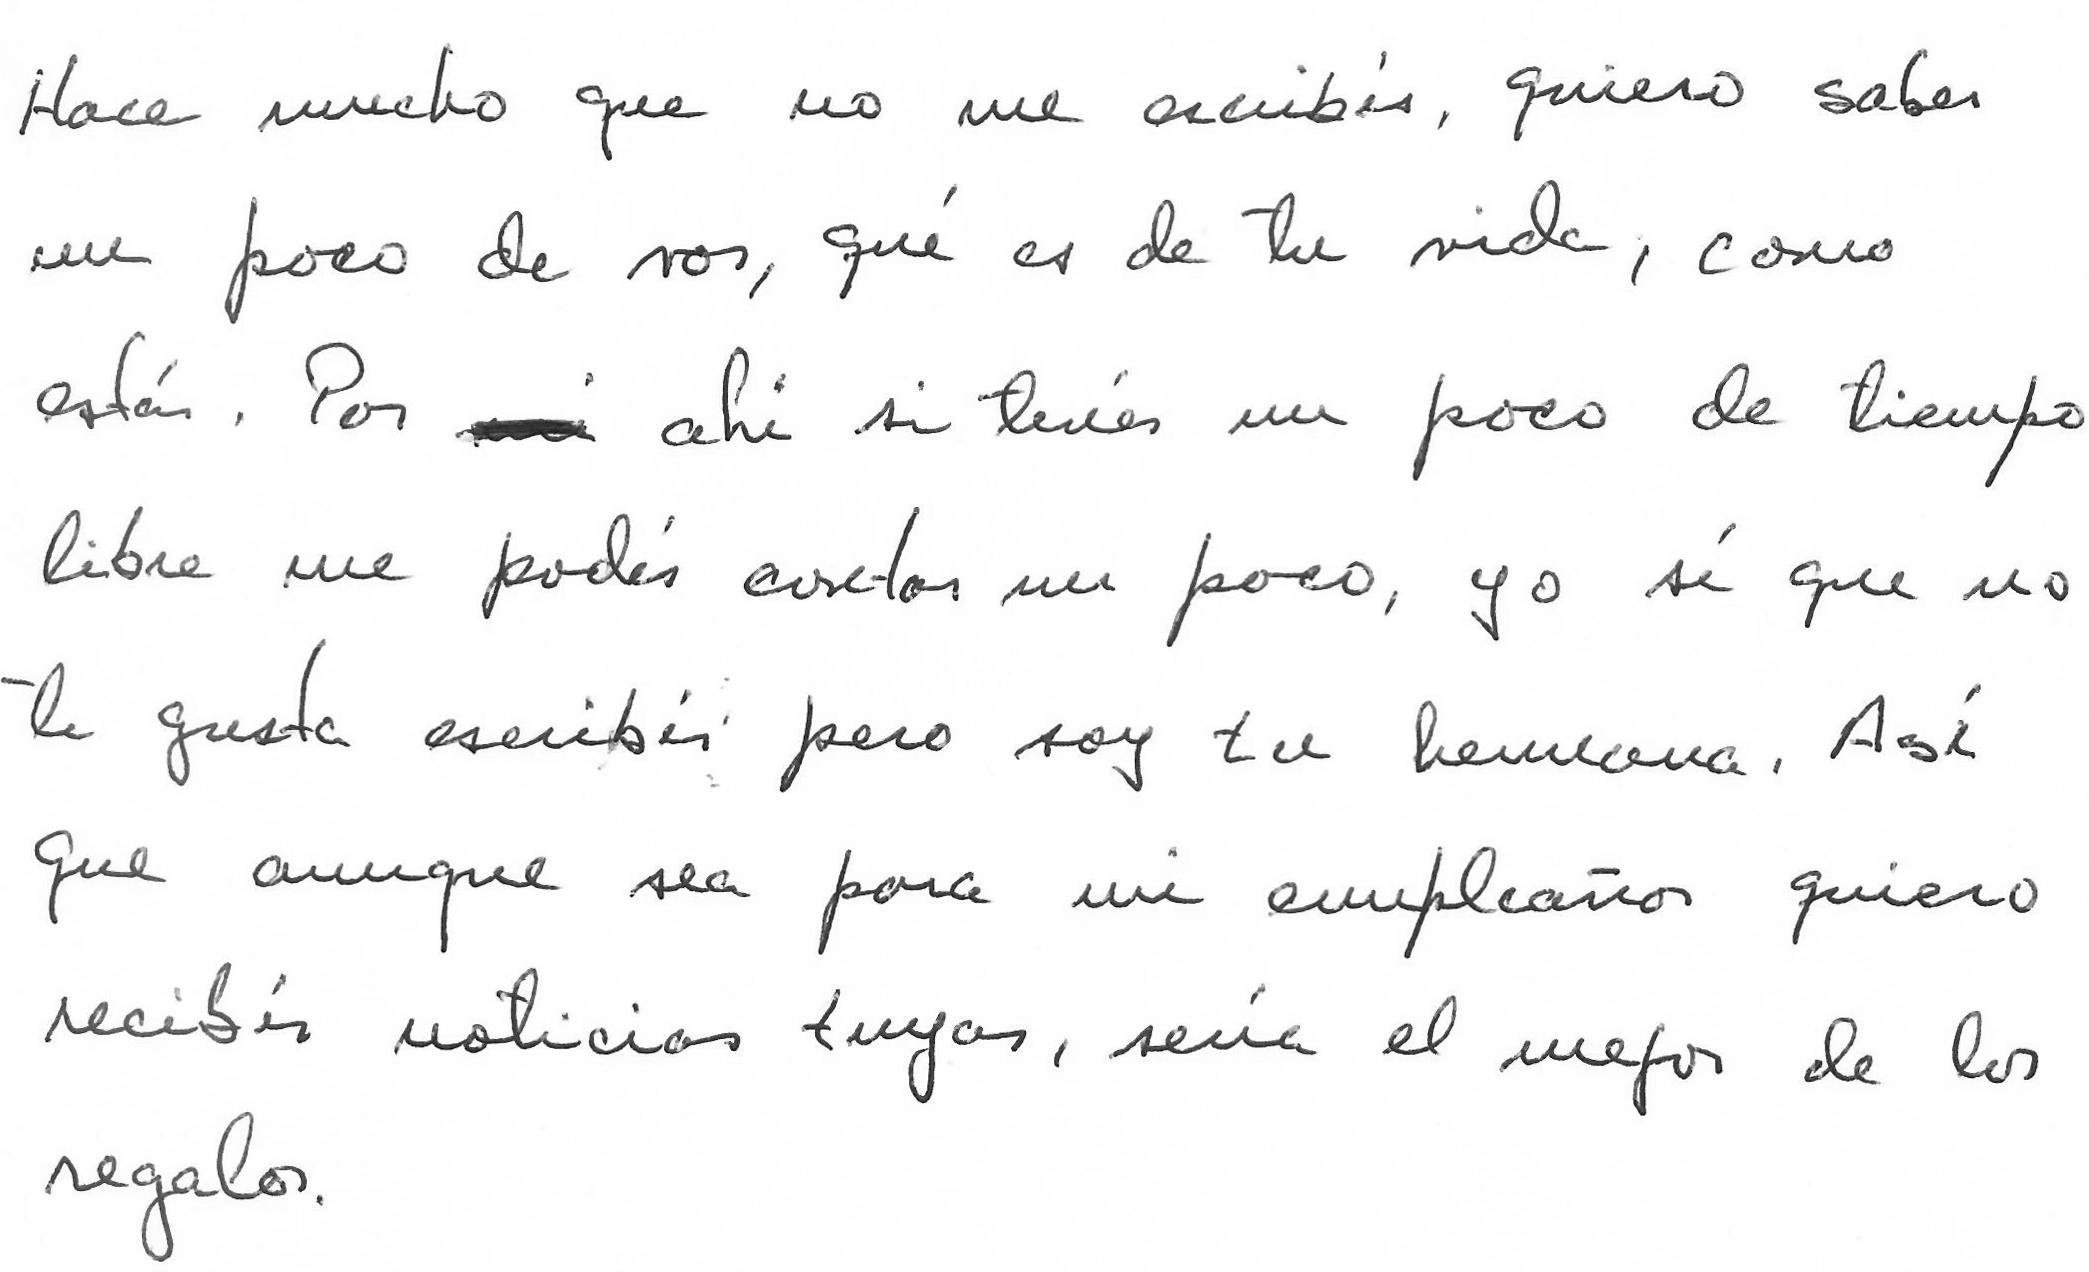 Hace mucho que no me escribís, quiero saber
un poco de vos, qué es de tu vida, como
estás. Por ahí si tenés un poco de tiempo
libre me podés contar un poco, yo sé que no
te gusta escribir pero soy tu hermana. Así
que aunque sea para mi cumpleaños quiero
recibir noticias tuyas, sería el mejor de los
regalos.